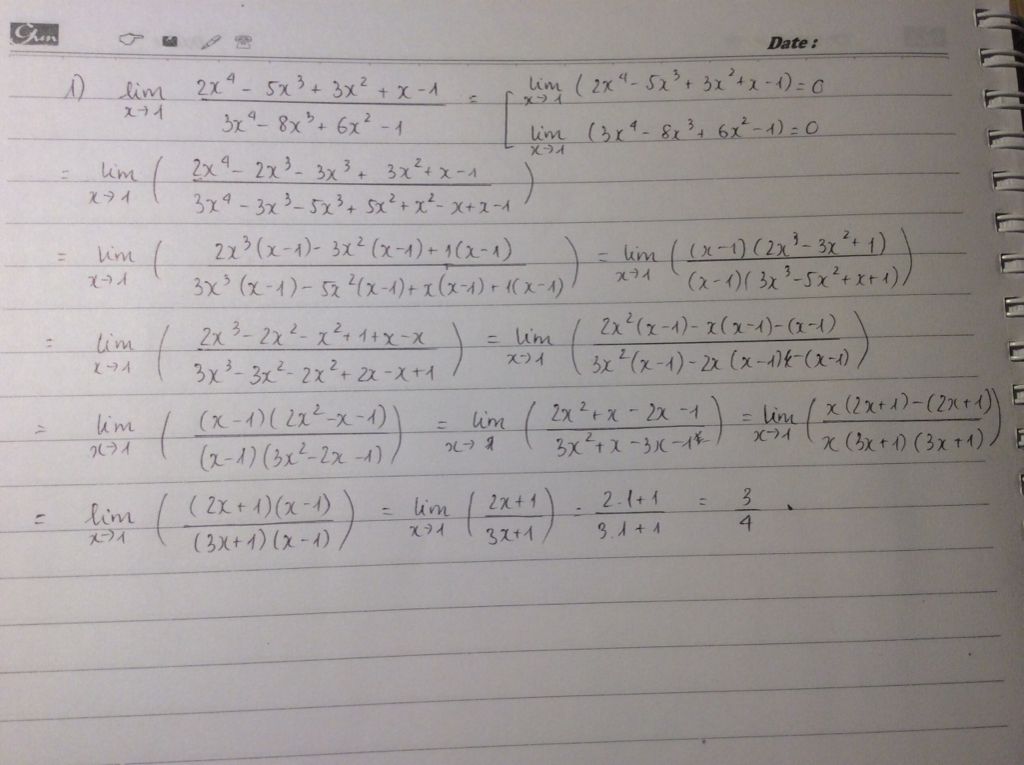 Gren Date :
1) lim x→1 (2x⁴ - 5x³ + 3x² + x - 1)/(3x⁴ - 8x³ + 6x² - 1) = [ lim x→1 (2x⁴ - 5x³ + 3x² + x - 1) = 0
lim x→1 (3x⁴ - 8x³ + 6x² - 1) = 0
= lim x→1 ( (2x⁴ - 2x³ - 3x³ + 3x² + x - 1)/(3x⁴ - 3x³ - 5x³ + 5x² + x² - x + x - 1) )
= lim x→1 ( (2x³(x-1) - 3x²(x-1) + 1(x-1))/(3x³(x-1) - 5x²(x-1) + x(x-1) + 1(x-1)) ) = lim x→1 ( ((x-1)(2x³ - 3x² + 1))/((x-1)(3x³ - 5x² + x + 1)) )
= lim x→1 ( (2x³ - 2x² - x² + 1 + x - x)/(3x³ - 3x² - 2x² + 2x - x + 1) ) = lim x→1 ( (2x²(x-1) - x(x-1) - (x-1))/(3x²(x-1) - 2x(x-1) - (x-1)) )
= lim x→1 ( ((x-1)(2x² - x - 1))/((x-1)(3x² - 2x - 1)) ) = lim x→1 ( (2x² + x - 2x - 1)/(3x² + x - 3x - 1) ) = lim x→1 ( (x(2x+1) - (2x+1))/(x(3x+1)(3x+1)) )
= lim x→1 ( ((2x+1)(x-1))/((3x+1)(x-1)) ) = lim x→1 ( (2x+1)/(3x+1) ) = (2.1+1)/(3.1+1) = 3/4 .